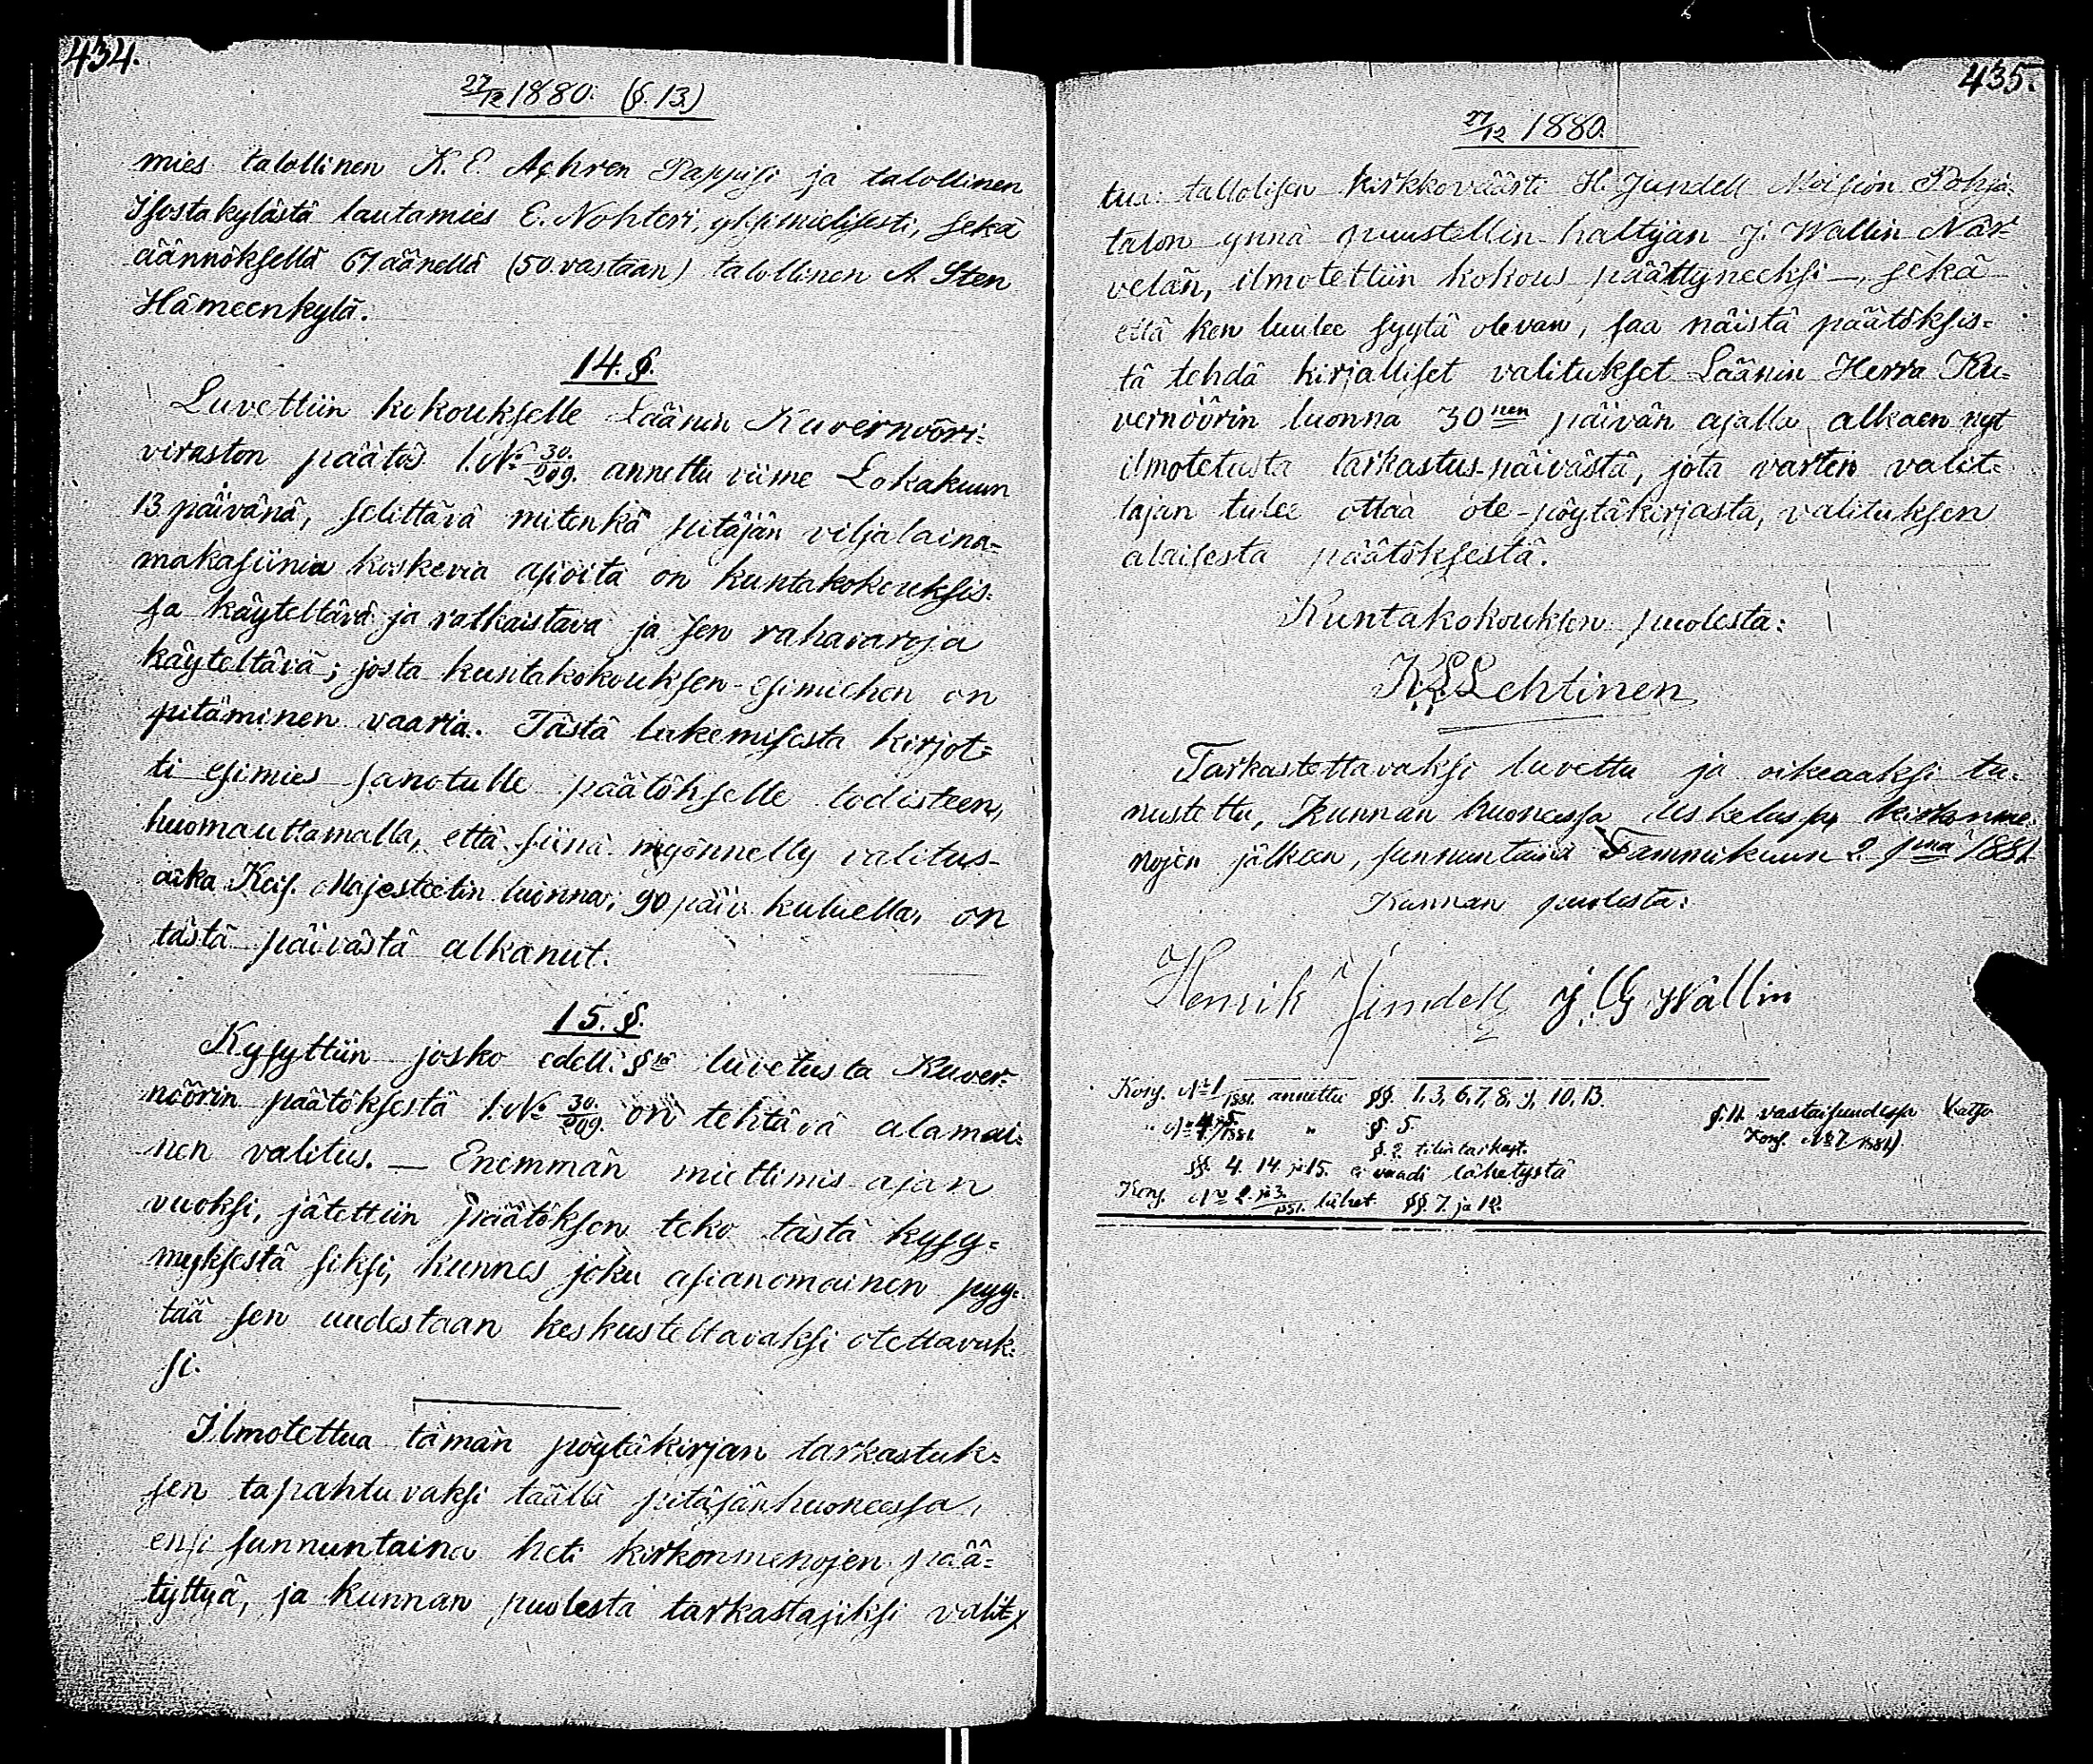 434.
27/12 1880. (§. 13.)
mies talollinen K. E. Achren Pappisi ja talollinen
Isostakylästä lautamies E. Nohteri, yksimielisesti, sekä
äännöksellä 67 äänellä (50 vastaan) talollinen A Sten
Hämeenkylä.
14. §.
Luvettiin kokoukselle Läänin Kuvernööri-
viraston päätös l. No 30./209. annettu viime Lokakuun
13 päivänä, selittävä mitenkä pitäjän viljalaina-
makasiinia koskevia asioita on kuntakokouksis-
sa käyteltävä ja ratkaistava ja sen rahavaroja
käyteltävä; josta kuntakokouksen-esimiehen on
pitäminen vaaria. Tästä lukemisesta kirjot-
ti esimies sanotulle päätökselle todisteen,
huomauttamalla, että siinä myönnetty valitus-
aika Keis. Majesteetin luonna, 90 päiv. kuluella, on
tästä päivästä alkanut.
15. §.
Kysyttiin josko edell. §sä luvetusta Kuver-
nöörin päätöksestä l. No 30./209. on tehtävä alamai-
nen valitus. — Enemmän miettimis-ajan
vuoksi, jätettiin päätöksen teko tästä kysy-
myksestä siksi, kunnes joku asianomainen pyy-
tää sen uudestaan keskusteltavaksi otettavak-
si.
Ilmotettua tämän pöytäkirjan tarkastuk-
sen tapahtuvaksi täällä pitäjänhuoneessa,
ensi sunnuntaina heti kirkonmenojen pää-
tyttyä, ja kunnan puolesta tarkastajiksi valit-
435.
27/12 1880.
tua: tallolisen kirkkoväästi H. Jundell Moision Pohja-
talon ynnä puustellin haltijan J. Wallin När-
velän, ilmotettiin kokous päättyneeksi —, sekä
että ken luulee syytä olevan, saa näistä päätöksis-
tä tehdä kirjalliset valitukset Läänin Herra Ku-
vernöörin luonna 30 nen päivän ajalla, alkaen nyt
ilmotetusta tarkastus-päivästä, jota varten valit-
tajan tulee ottaa ote-pöytäkirjasta, valituksen
alaisesta päätöksestä.
Kuntakokouksen puolesta:
K. L. Lehtinen
Tarkastettavaksi luvettu ja oikeaaksi tu-
nustettu, Kunnan huoneessa Uskelassa, kirkonme-
nojen jälkeen, sunnuntaina Tammikuun 2 pnä 1881
Kunnan puolesta:
Henrik Jundell J. G. Wallin
Kons. No 1/1881. annettu §§. 1, 3, 6, 7, 8, 9, 10, 13.
" No 4, 5/1881. " §. 5.
§. 11. vastaisuudessa katso
Konf. No 7/1881)
§. 2. tilin tarkast.
§§. 4. 14. ja 15. ei vaadi lähetystä
Konf. No 2. ja 3./1881. lähet. §§. 7. ja 12.